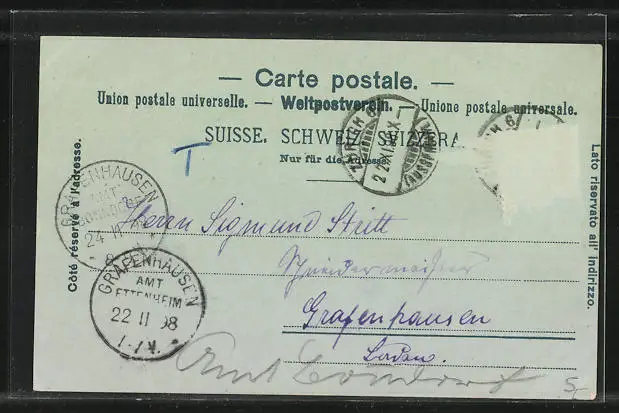 — Carte postale. —
Union postale universelle. — Weltpostverein. — Unione postale universale.
SUISSE. SCHWEIZ. SVIZZERA
Nur für die Adresse.
Côté réservé à l'adresse.
Lato riservato all' indirizzo.
T
ZÜRICH
GRAFENHAUSEN
AMT
BONNDORF
24 11
GRAFENHAUSEN
AMT
ETTENHEIM
22 11 98
Herrn Sigmund Stritt
Schneidermeister
Grafenhausen
Baden.
Amt Bonndorf